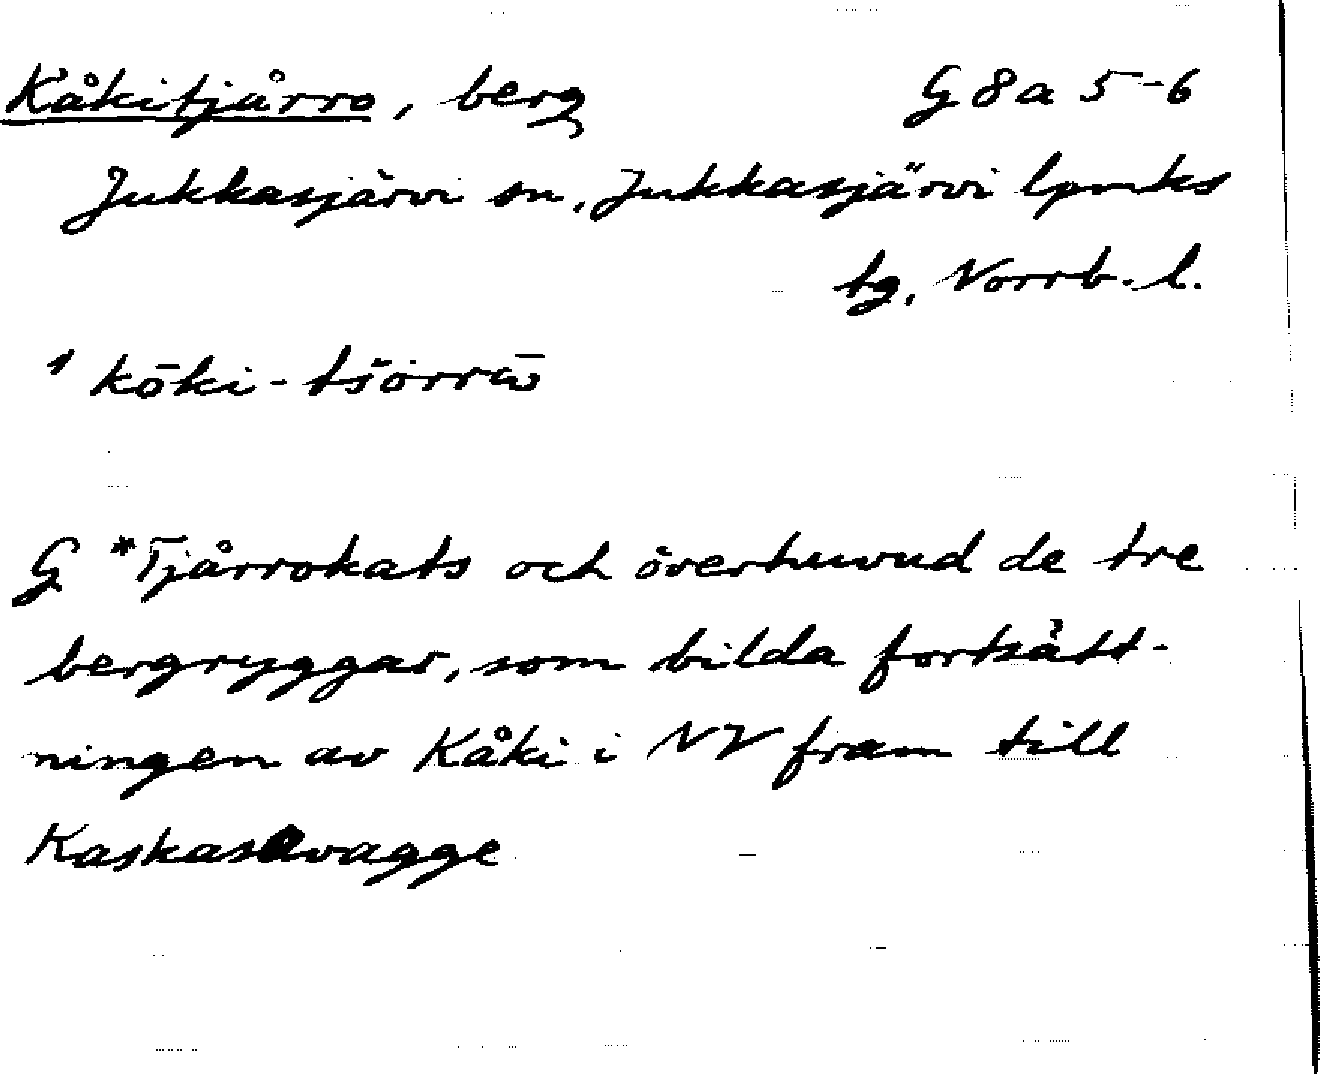 Kåkitjårro, berg G 8 a 5-6
Jukkasjärvi sn, Jukkasjärvi lpmks
tg, Norrb. l.
1 kōki-tšorrω̄
G *Tjårrokats och överhuvud de tre
bergryggar, som bilda fortsätt-
ningen av Kåki i NV fram till
Kaskasavagge